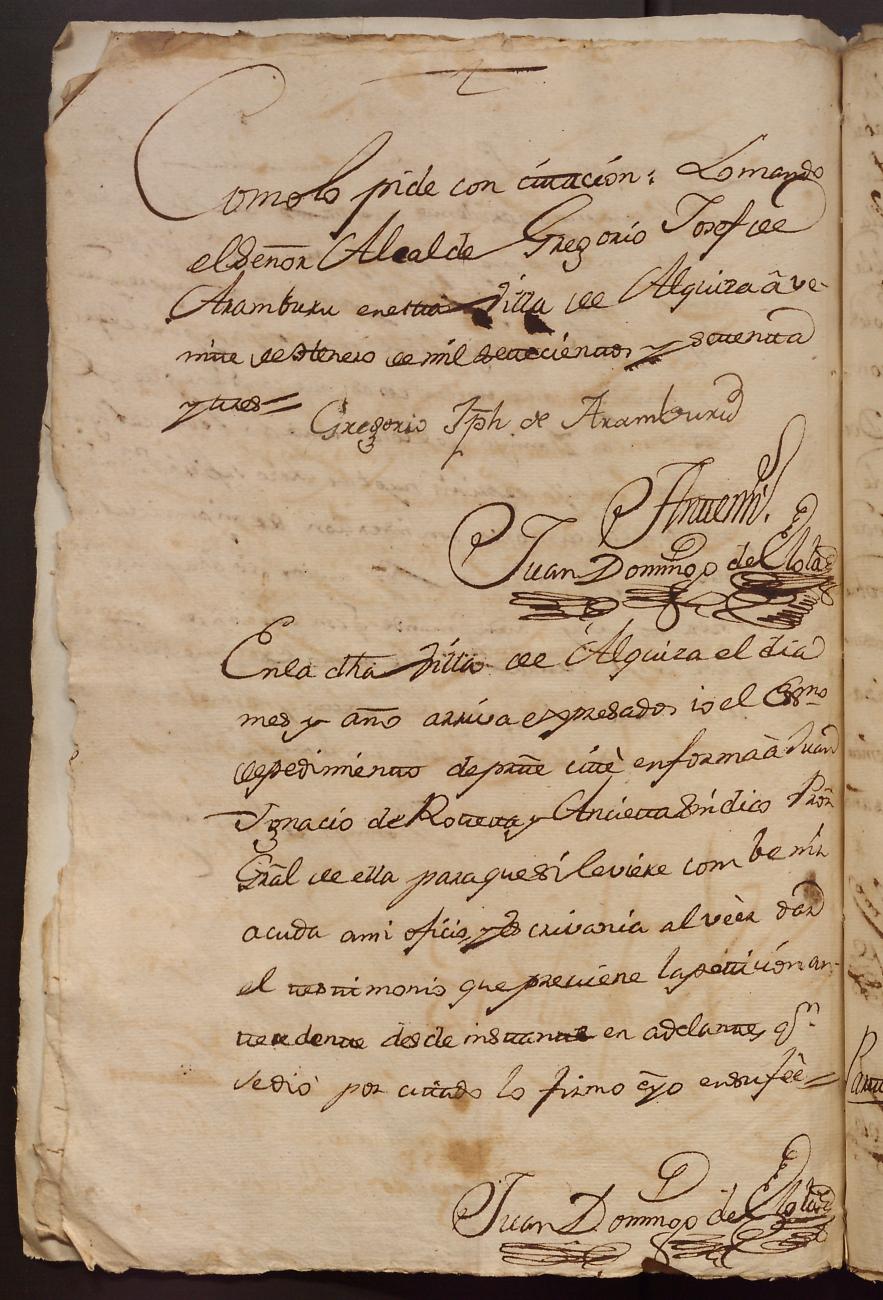 Como lo pide con citación: Lo mando
el Señor Alcalde Gregorio Josef de
Aramburu en esta Villa de Alquiza â ve-
inte de Henero de mil setecientos y setenta
y tres=
Gregorio Jph de Aramburu
Antemi.
Juan Domingo de
En la dha Villa de Alquiza el dia
mes y año arriva expresados io el Essno
de pedimento de prte citè en forma â Juan
Ignacio de Roteta y Ancieta Sindico Pror
Gral de ella para que si le viere combenir
acuda a mi oficio, y Escrivania al vèer dar
el testimonio que previene la peticion an-
tecedente desde instante en adelante, qn
se diò por citado lo firmo è yo en su fèe=
Juan Domingo de